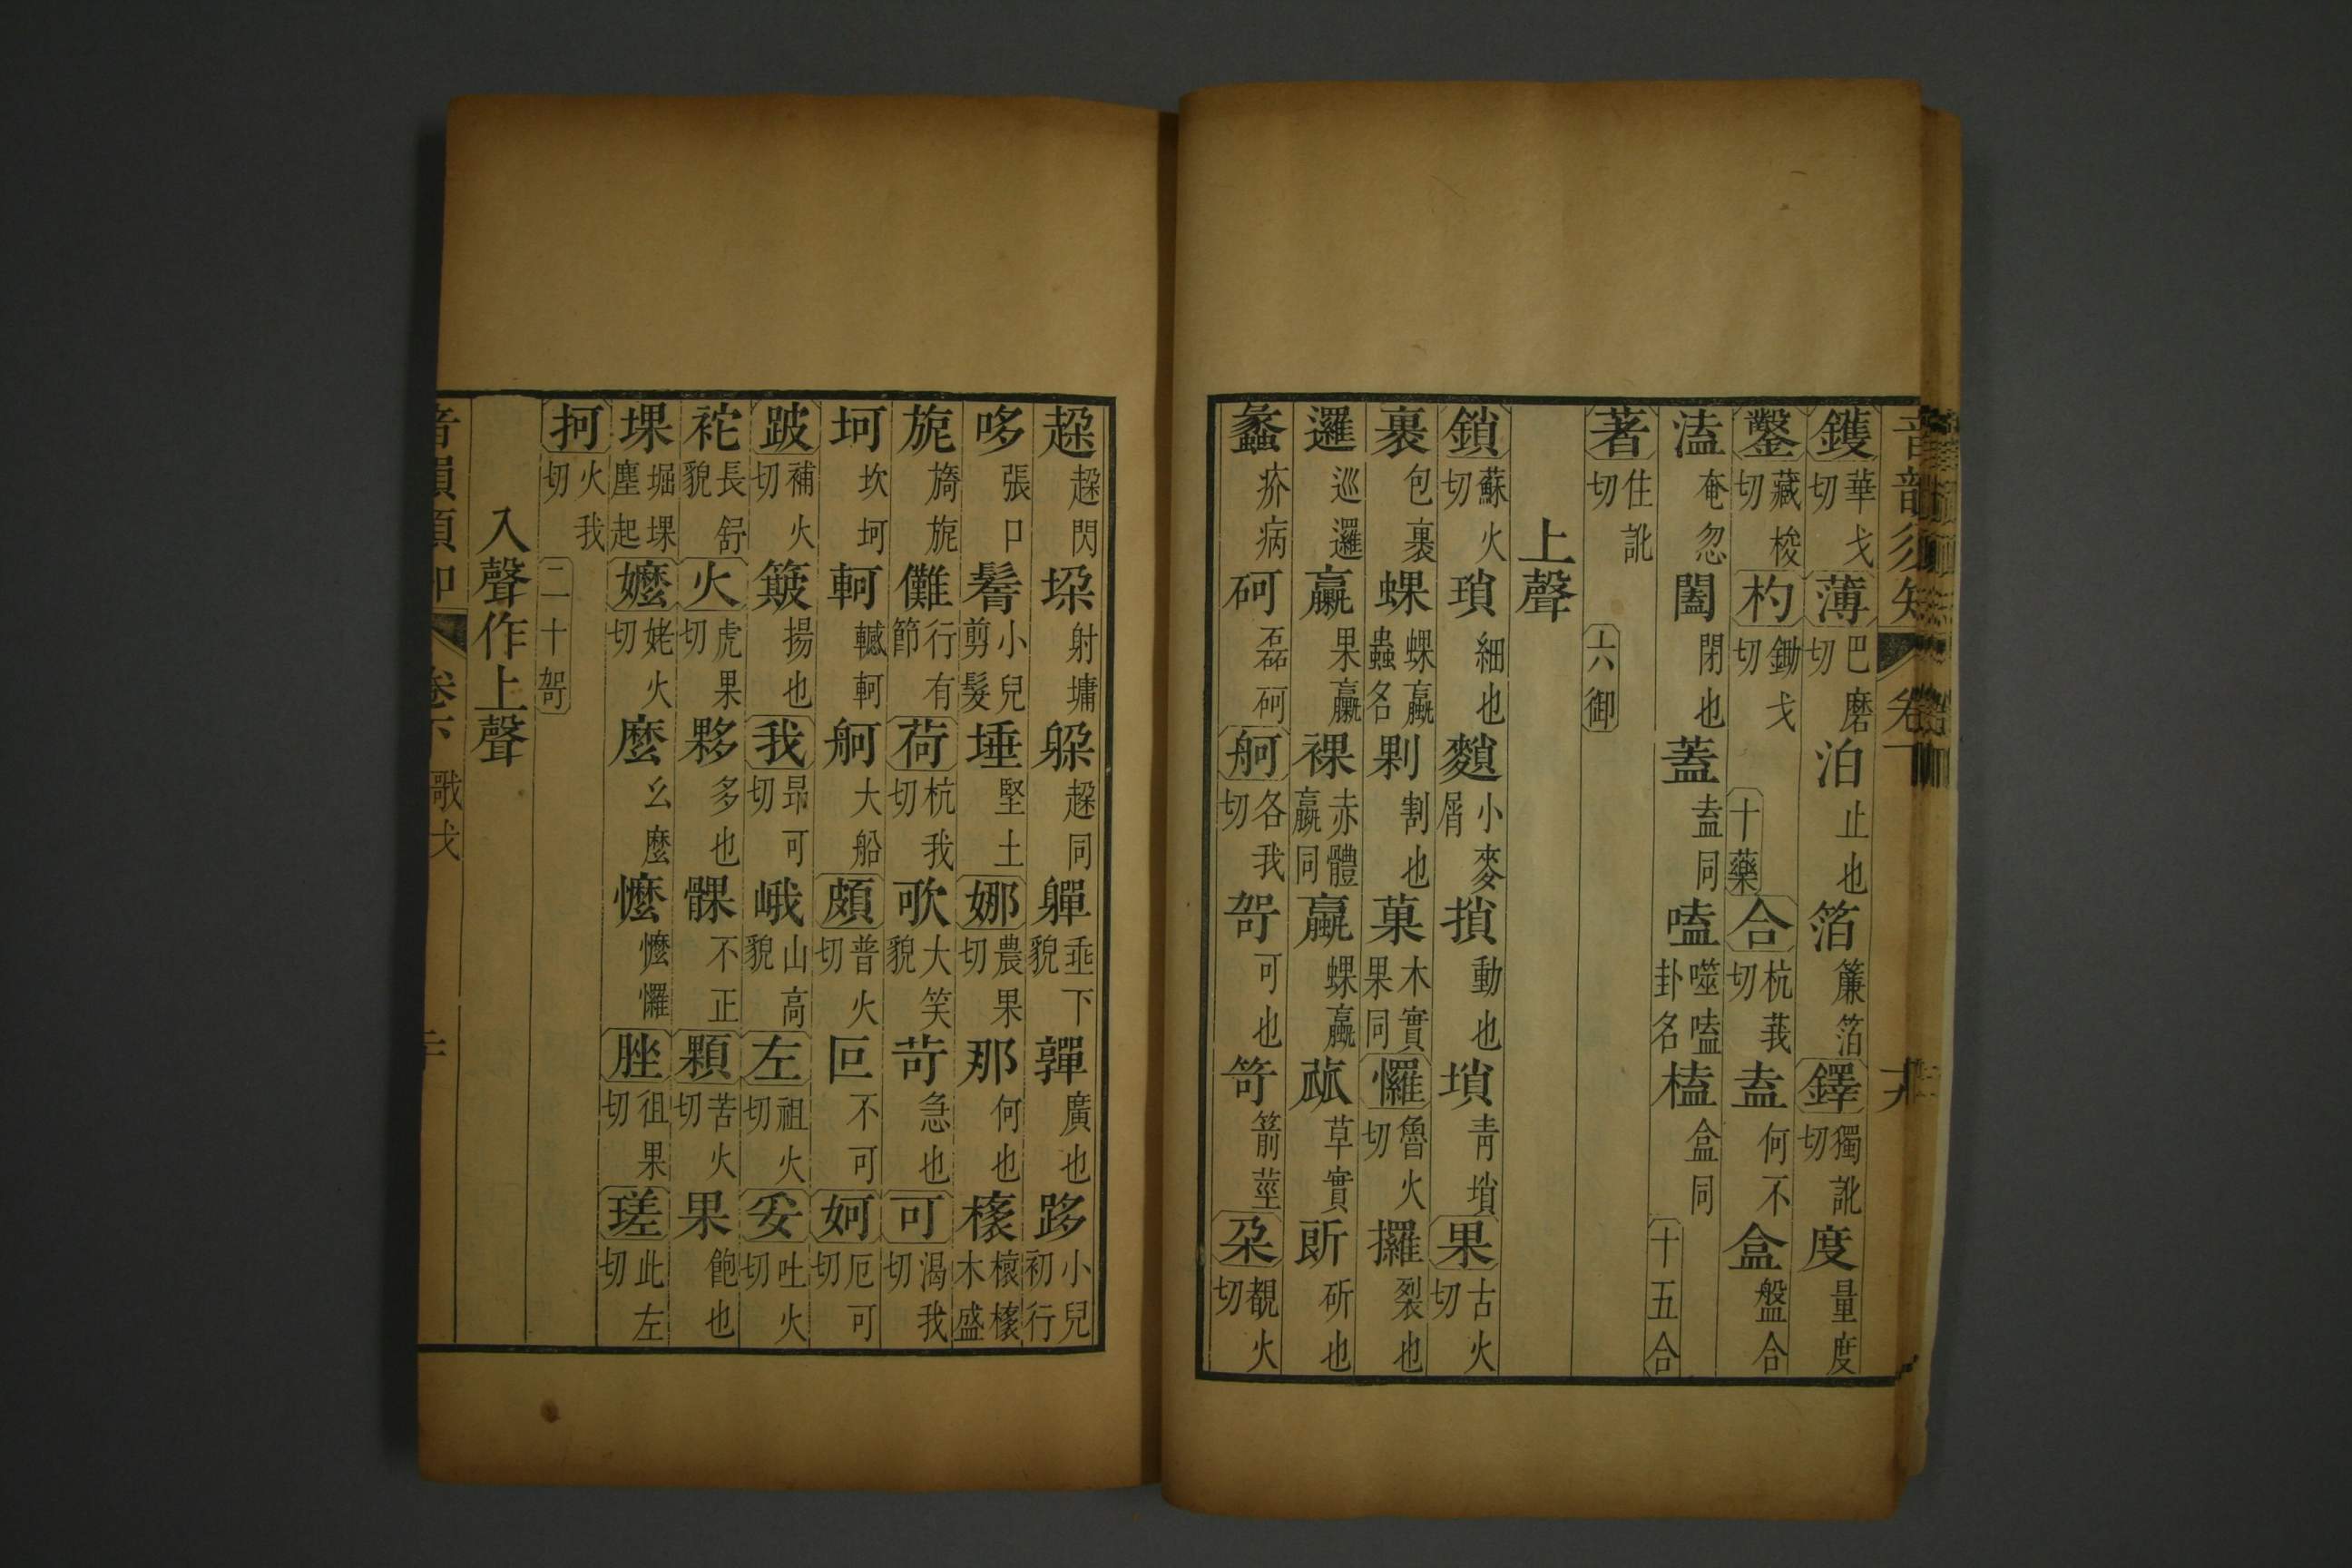 音韻須知 卷下
鑊華戈切薄巴磨切泊止也箔簾箔鐸獨訛切度量度
鑿藏梭切杓鋤戈切十藥合杭莪切盍何不盒盤合
溘奄忽闔閉也蓋盍同嗑噬嗑卦名榼盒同十五合
著住訛切六御
上聲
鎖蘇火切瑣細也䴹小麥屑損動也塤青塤果古火切
裹包裹蜾蜾蠃蟲名剿割也菓木實果同㦬魯火切攞裂也
邏巡邏蠃果蠃裸赤體蠃同蠃蜾蠃蓏草實斫也
蠡疥病砢磊砢舸各我切哿可也笴箭莖朶覩火切
趓趓閃垛射墉躱趓同軃埀下嚲廣也跢小兒初行
哆張口鬌小兒剪髮埵堅土娜農果切那何也橠榱橠木盛
旎旖旎儺行有節荷杭我切歌大笑貌苛急也可渴我切
坷坎坷軻轗軻舸大船頗普火切叵不可妸厄可切
跛補火切簸揚也我昻可切峨山高貌左祖火切妥吐火切
袉長舒貌火虎果切夥多也髁不正顆苦火切果飽也
堁堀堁塵起嬤姥火切麼幺麼懡懡㦬脞徂果切瑳此左切
抲火我切二十哿
入聲作上聲
音韻須知 卷下 歌戈